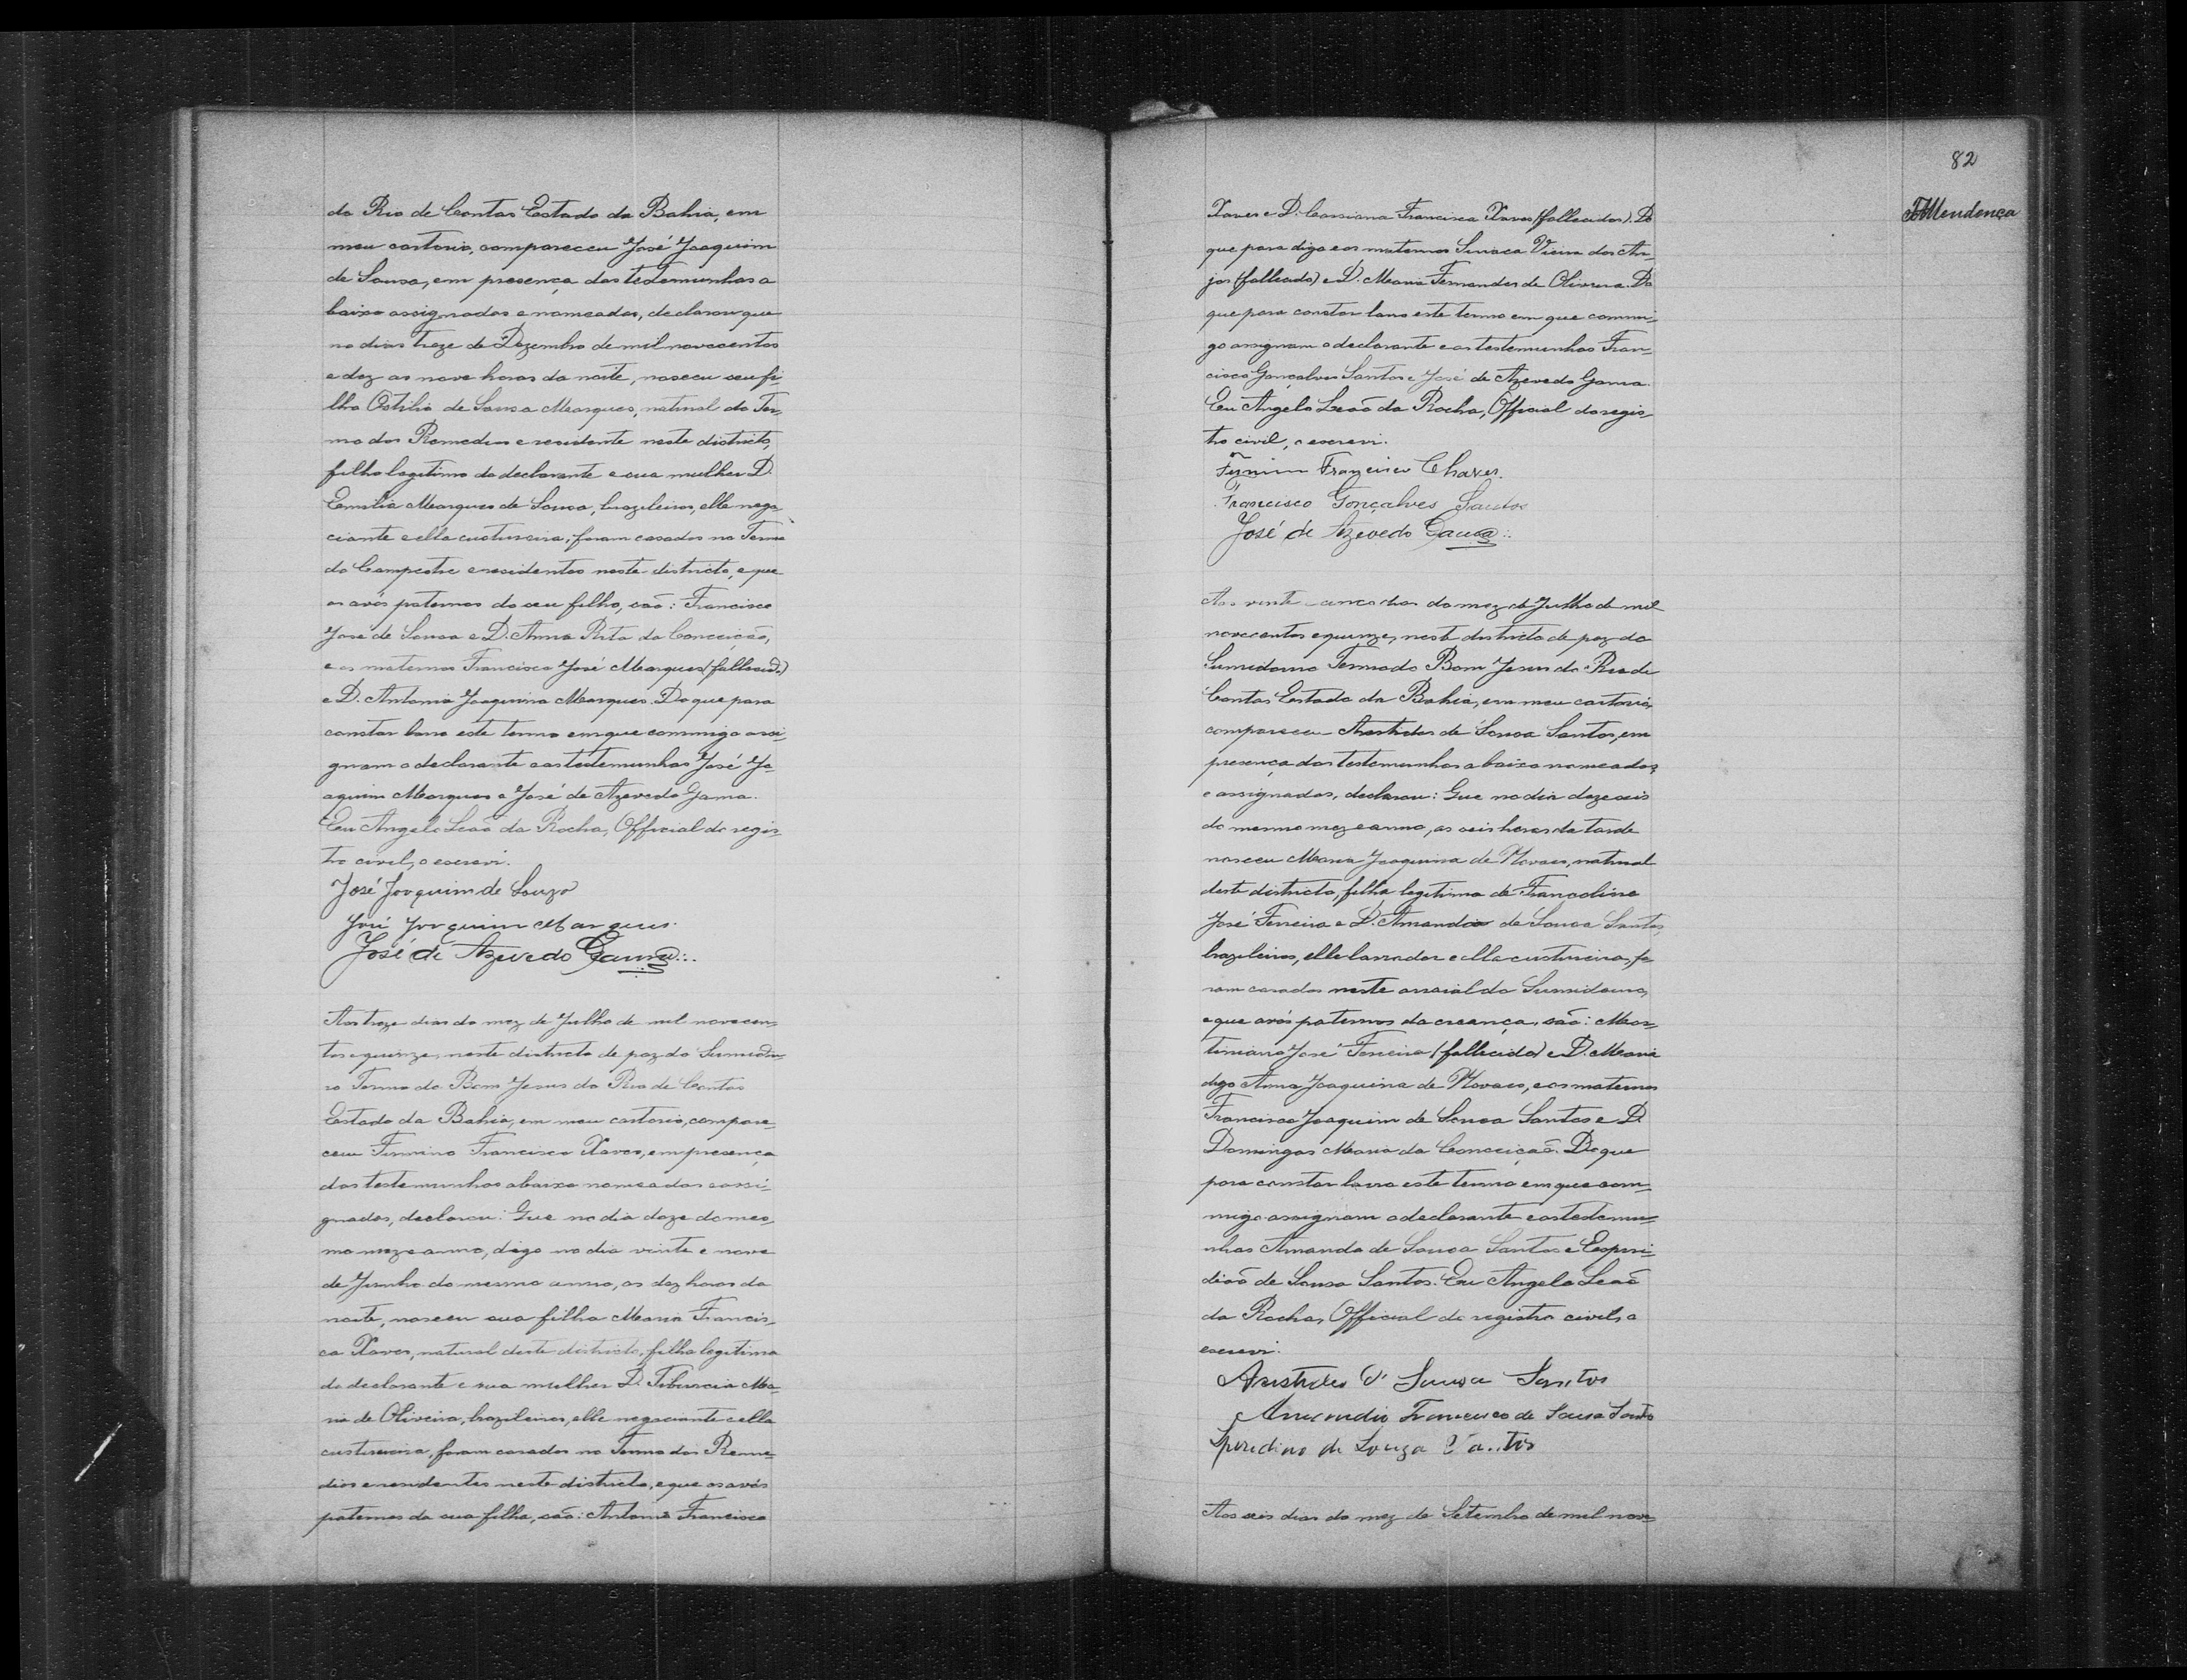 do Rio de Contas Estado da Bahia, em
meu cartorio, compareceu José Joaquim
de Sousa, em presença das testemunhas a
baixo assignadas e nomeadas, declarou que
no dias treze de Dezembro de mil novecentos
e dez as nove horas da noite, nasceu seu fi-
lho Ostilio de Sousa Marques, natural do Ter-
mo dos Remedios e residente neste districto,
filho legitimo do declarante e sua mulher D.
Emilia Marques de Sousa, brazileiros, elle nego-
ciante e ella custureira, foram casados no Termo
do Campestre e residentes neste districto, e que
os avós paternos do seu filho, são: Francisco
José de Sousa e D. Anna Rita da Conceição,
e os maternos Francisco José Marques (fallecido)
e D. Antonia Joaquina Marques. Do que para
constar lavro este termo em que commigo assi-
gnam o declarante e as testemunhas José Jo-
aquim Marques e José de Azevedo Gama.
Eu Angelo Leão da Rocha, Official do regis-
tro civil, o escrevi.
José Joaquim de Souza
José Joaquim Marques.
José de Azevedo Gama
Aos treze dias do mez de Julho de mil novecen-
tos e quinze, neste districto de paz do Sumidou-
ro Termo do Bom Jesus do Rio de Contas
Estado da Bahia, em meu cartorio, compare-
ceu Firmino Francisco Xaves, em presença
das testemunhas abaixo nomeadas e assi-
gnadas, declarou: Que no dia doze do mes-
mo mez e anno, digo no dia vinte e nove
de Junho do mesmo anno, as dez horas da
noite, nasceu sua filha Maria Francis-
ca Xaves, natural deste districto, filha legitima
do declarante e sua mulher D. Tiburcia Ma-
ria de Oliveira, brazileiros, elle negociante e ella
custureira, foram casados no Termo dos Reme-
dios e residentes neste districto, e que os avós
paternos da sua filha, são: Antonio Francisco
82
Mendença
Xaves e D. Cassiana Francisca Xaves (fallecidos). Do
que para digo e os maternos Vieira dos An-
jos (fallecido) e D. Maria Fernandes de Oliveira. Do
que para constar lavro este termo em que commi-
go assignam o declarante e as testemunhas Fran-
cisco Gonçalves Santos e José de Azevedo Gama.
Eu Angelo Leão da Rocha, Official do regis-
tro civil, o escrevi.
Francisco Chaves.
Francisco Gonçalves Santos
José de Azevedo Gama
Aos vinte e cinco dias do mez de Julho de mil
novecentos e quinze, neste districto de paz do
Sumidouro Termo do Bom Jesus do Rio de
Contas Estado da Bahia, em meu cartorio,
compareceu Aristides de Sousa Santos, em
presença das testemunhas abaixo nomeadas
e assignadas, declarou: Que no dia dezeseis
do mesmo mez e anno, as seis horas da tarde
nasceu Maria Joaquina de Novaes, natural
deste districto, filha legitima de Francolino
José Ferreira e D. Amandia de Sousa Santos,
brazileiros, elle lavrador e ella custureira, fo-
ram casados neste arraial do Sumidouro,
e que avós paternos da creança, são: Mar-
tiniano José Ferreira (fallecido) e D. Maria
digo Anna Joaquina de Novaes, e os maternos
Francisco Joaquim de Sousa Santos e D.
Domingas Maria da Conceição. Do que
para constar lavro este termo em que com-
migo assignam o declarante e as testemu-
nhas Amando de Sousa Santos e Espiri-
dião de Sousa Santos. Eu Angelo Leão
da Rocha, Official do registro civil, o
escrevi.
Aristides d' Sousa Santos
Francisco de Sousa Santos
de Souza Santos
Aos seis dias do mez de Setembro de mil nove-